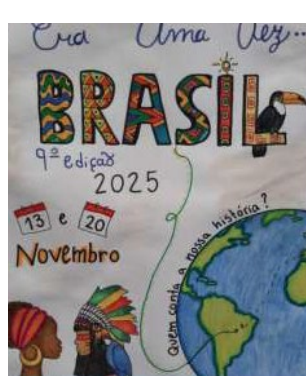 Era Uma Vez...
BRASIL
9ª edição
2025
13 e 20
Novembro
Quem conta a nossa história?